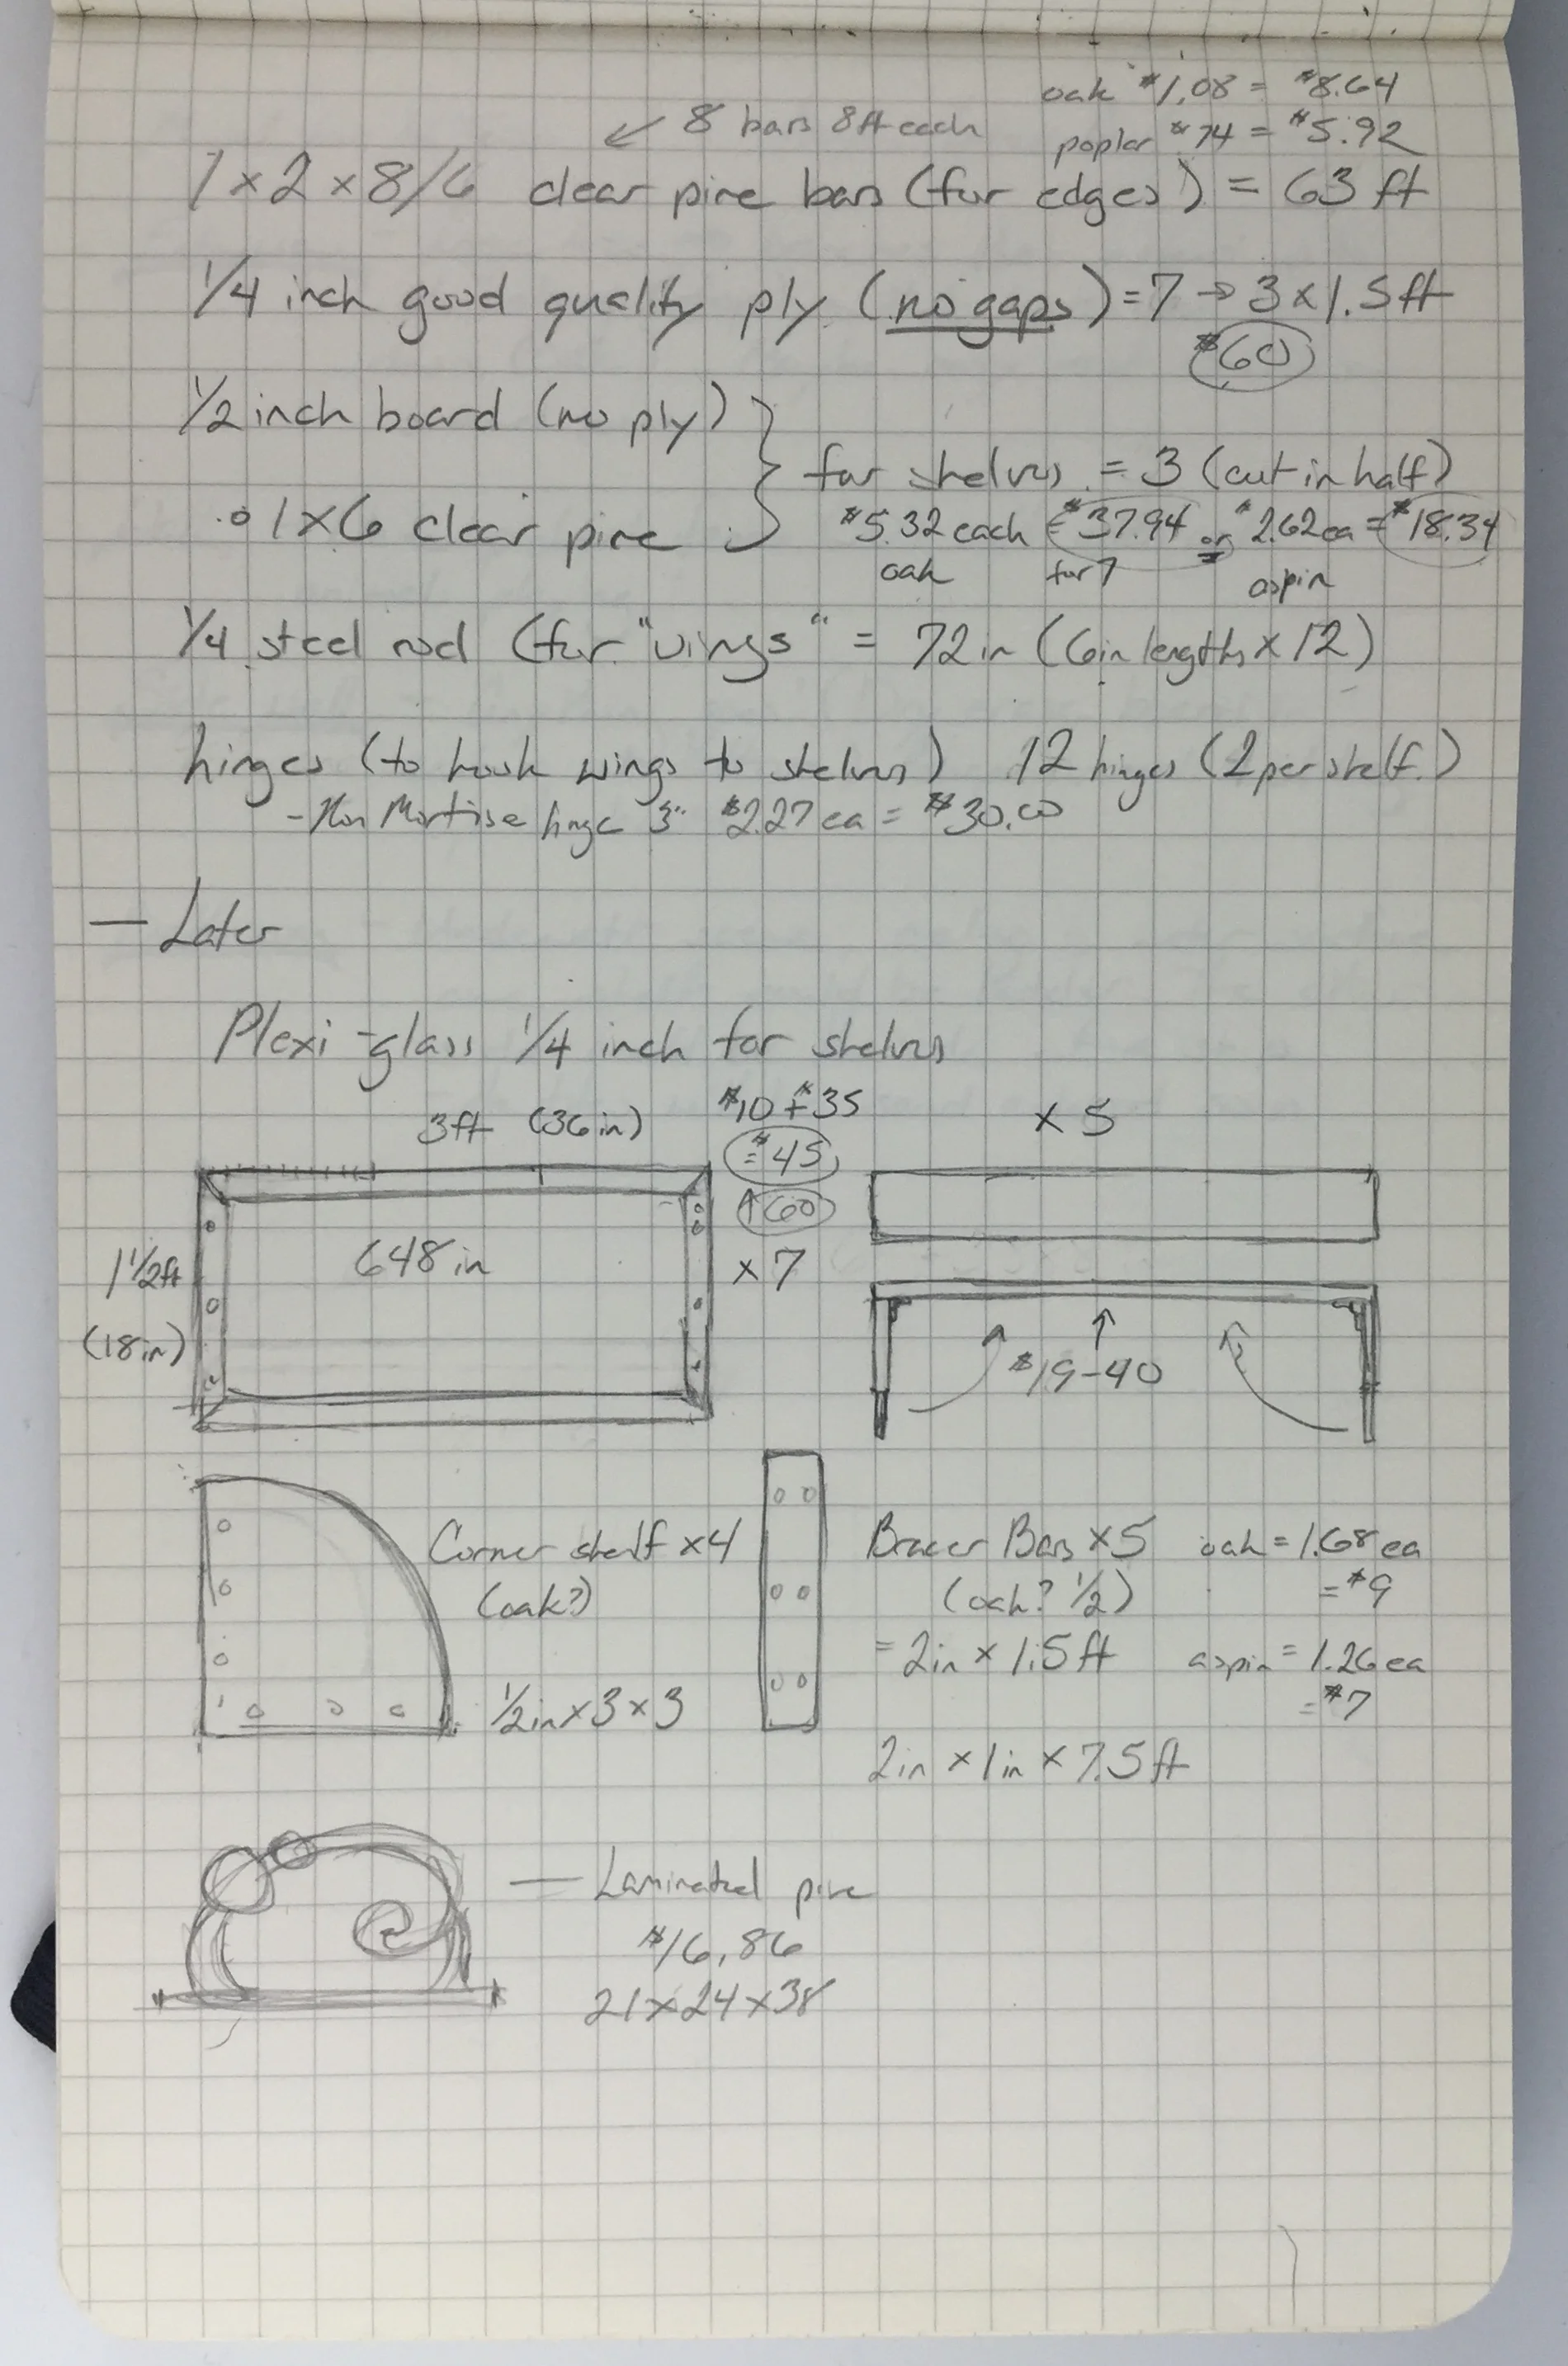 oak $1.08 = $8.64
↙ 8 bars 8ft each
poplar $.74 = $5.92
1 x 2 x 8/6 clear pine bars (for edges) = 63 ft
1/4 inch good quality ply (no gaps) = 7 → 3 x 1.5 ft
$60
1/2 inch board (no ply)
for shelves = 3 (cut in half)
1x6 clear pine
$5.32 each = $37.94 or $2.62 ea = $18.34
oak for 7 aspin
1/4 steel rod (for "wings" = 72 in (6in lengths x 12)
hinges (to hook wings to shelves) 12 hinges (2 per shelf.)
- Non Mortise hinge 3" $2.27 ea = $30.00
— Later
Plexi-glass 1/4 inch for shelves
3ft (36in) $10 + $35
= $45
↑ 60
x 7
x 5
1 1/2 ft
(18in)
648 in
$19-40
Corner shelf x4
(oak?)
1/2in x 3 x 3
Bracer Bars x5 oak = 1.68 ea
(oak? 1/2) = $9
= 2in x 1.5 ft aspin = 1.26 ea
= $7
2in x 1in x 7.5 ft
— Laminated pine
$16,86
21x24x38